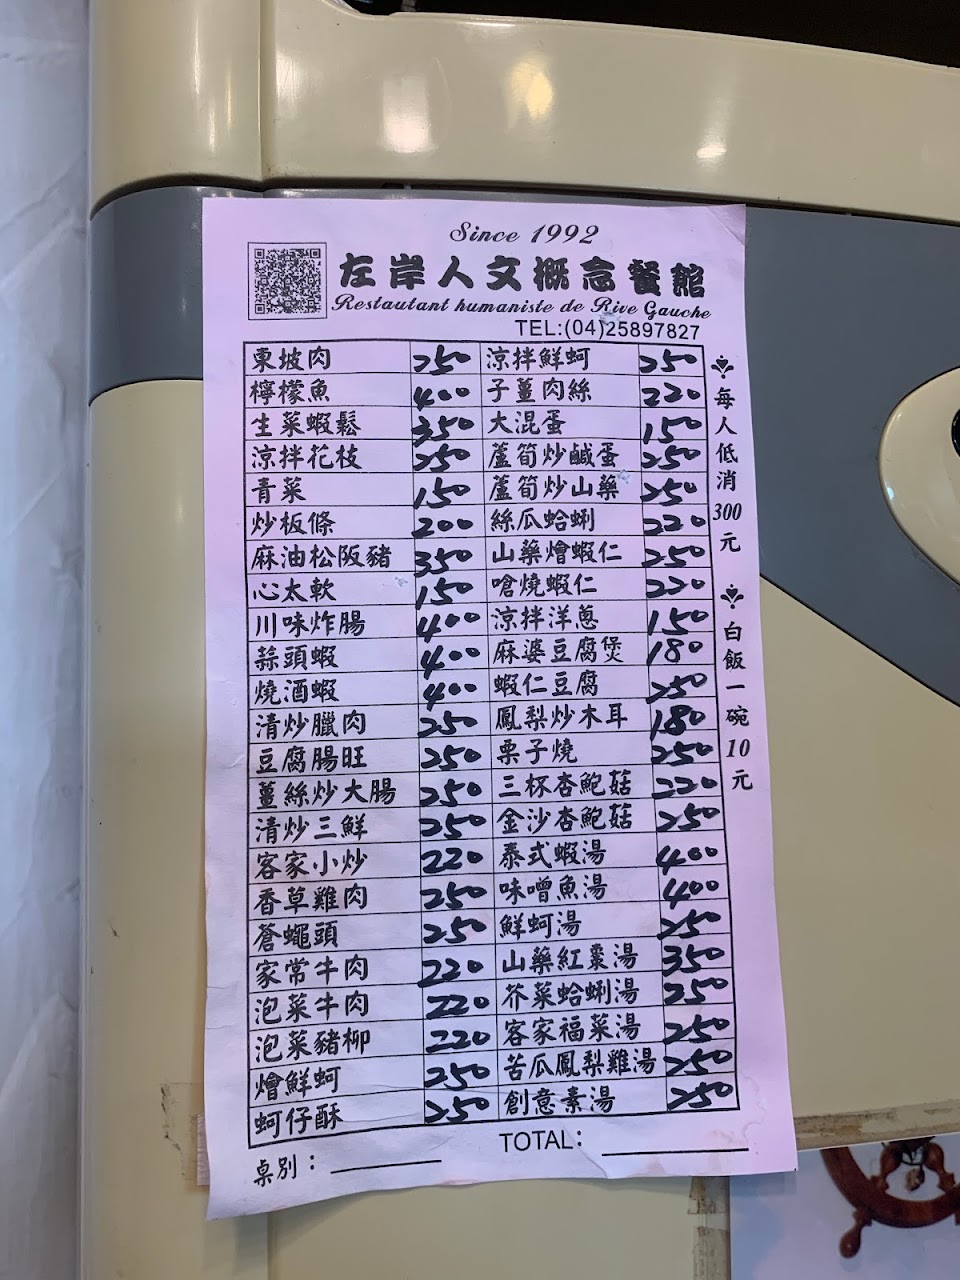 Since 1992
左岸人文概念餐館
Restautant humaniste de Rive Gauche
TEL:(04)25897827
東坡肉 250 涼拌鮮蚵 250
檸檬魚 400 子薑肉絲 220
生菜蝦鬆 350 大混蛋 150
涼拌花枝 250 蘆筍炒鹹蛋 250
青菜 150 蘆筍炒山藥 250
炒板條 200 絲瓜蛤蜊 220
麻油松阪豬 350 山藥燴蝦仁 250
心太軟 150 嗆燒蝦仁 220
川味炸腸 400 涼拌洋蔥 150
蒜頭蝦 400 麻婆豆腐煲 180
燒酒蝦 400 蝦仁豆腐 250
清炒臘肉 250 鳳梨炒木耳 180
豆腐腸旺 250 栗子燒 250
薑絲炒大腸 250 三杯杏鮑菇 220
清炒三鮮 250 金沙杏鮑菇 250
客家小炒 220 泰式蝦湯 400
香草雞肉 250 味噌魚湯 400
蒼蠅頭 250 鮮蚵湯 250
家常牛肉 220 山藥紅棗湯 350
泡菜牛肉 220 芥菜蛤蜊湯 250
泡菜豬柳 220 客家福菜湯 250
燴鮮蚵 250 苦瓜鳳梨雞湯 250
蚵仔酥 250 創意素湯 250
每人低消300元
白飯一碗10元
桌別：
TOTAL：